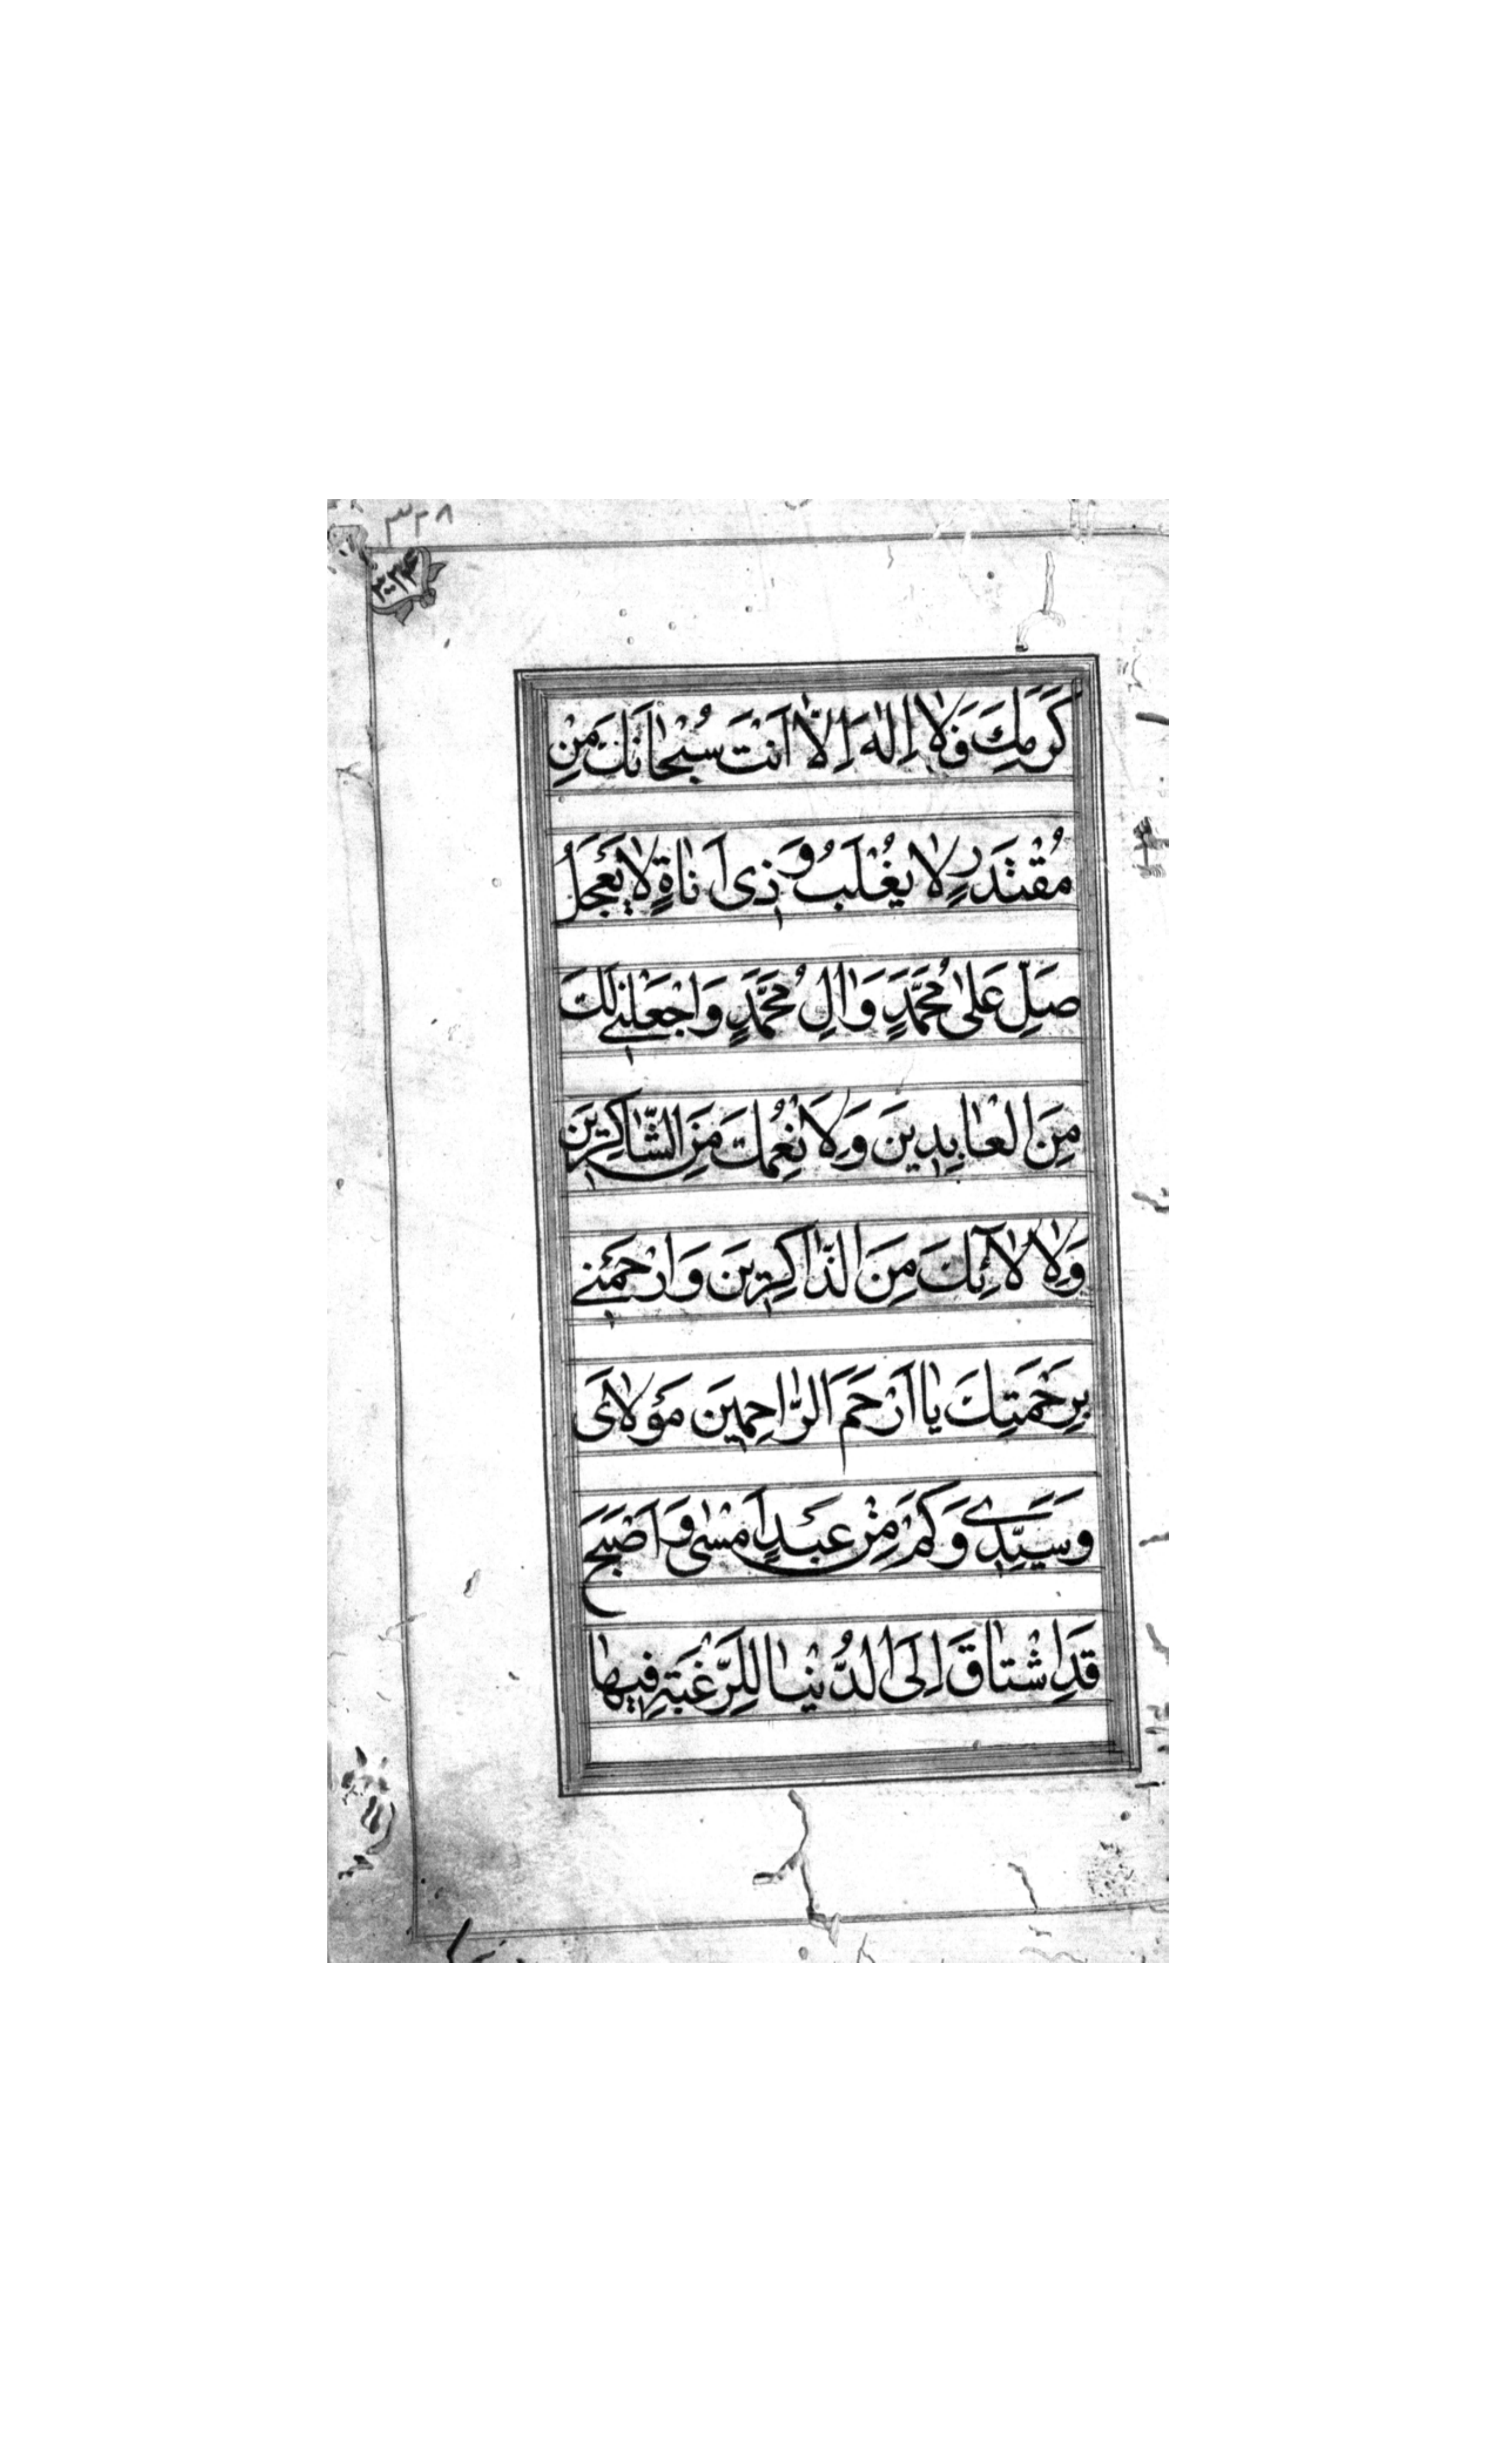 ٣٢٨
كَرَمِكَ وَلَا اِلٰهَ اِلَّا اَنْتَ سُبْحَانَكَ مِنْ
مُقْتَدِرٍ لَا يُغْلَبُ وَ ذِى اَنَاةٍ لَا يَعْجَلُ
صَلِّ عَلٰى مُحَمَّدٍ وَاٰلِ مُحَمَّدٍ وَاجْعَلْنِى لَكَ
مِنَ الْعَابِدِينَ وَلِاَنْعُمِكَ مِنَ الشَّاكِرِينَ
وَلِاٰلَآئِكَ مِنَ الذَّاكِرِينَ وَارْحَمْنِى
بِرَحْمَتِكَ يَا اَرْحَمَ الرَّاحِمِينَ مَوْلَاىَ
وَسَيِّدِى وَكَمْ مِنْ عَبْدٍ اَمْسٰى وَ اَصْبَحَ
قَدِ اشْتَاقَ اِلَى الدُّنْيَا لِلرَّغْبَةِ فِيهَا